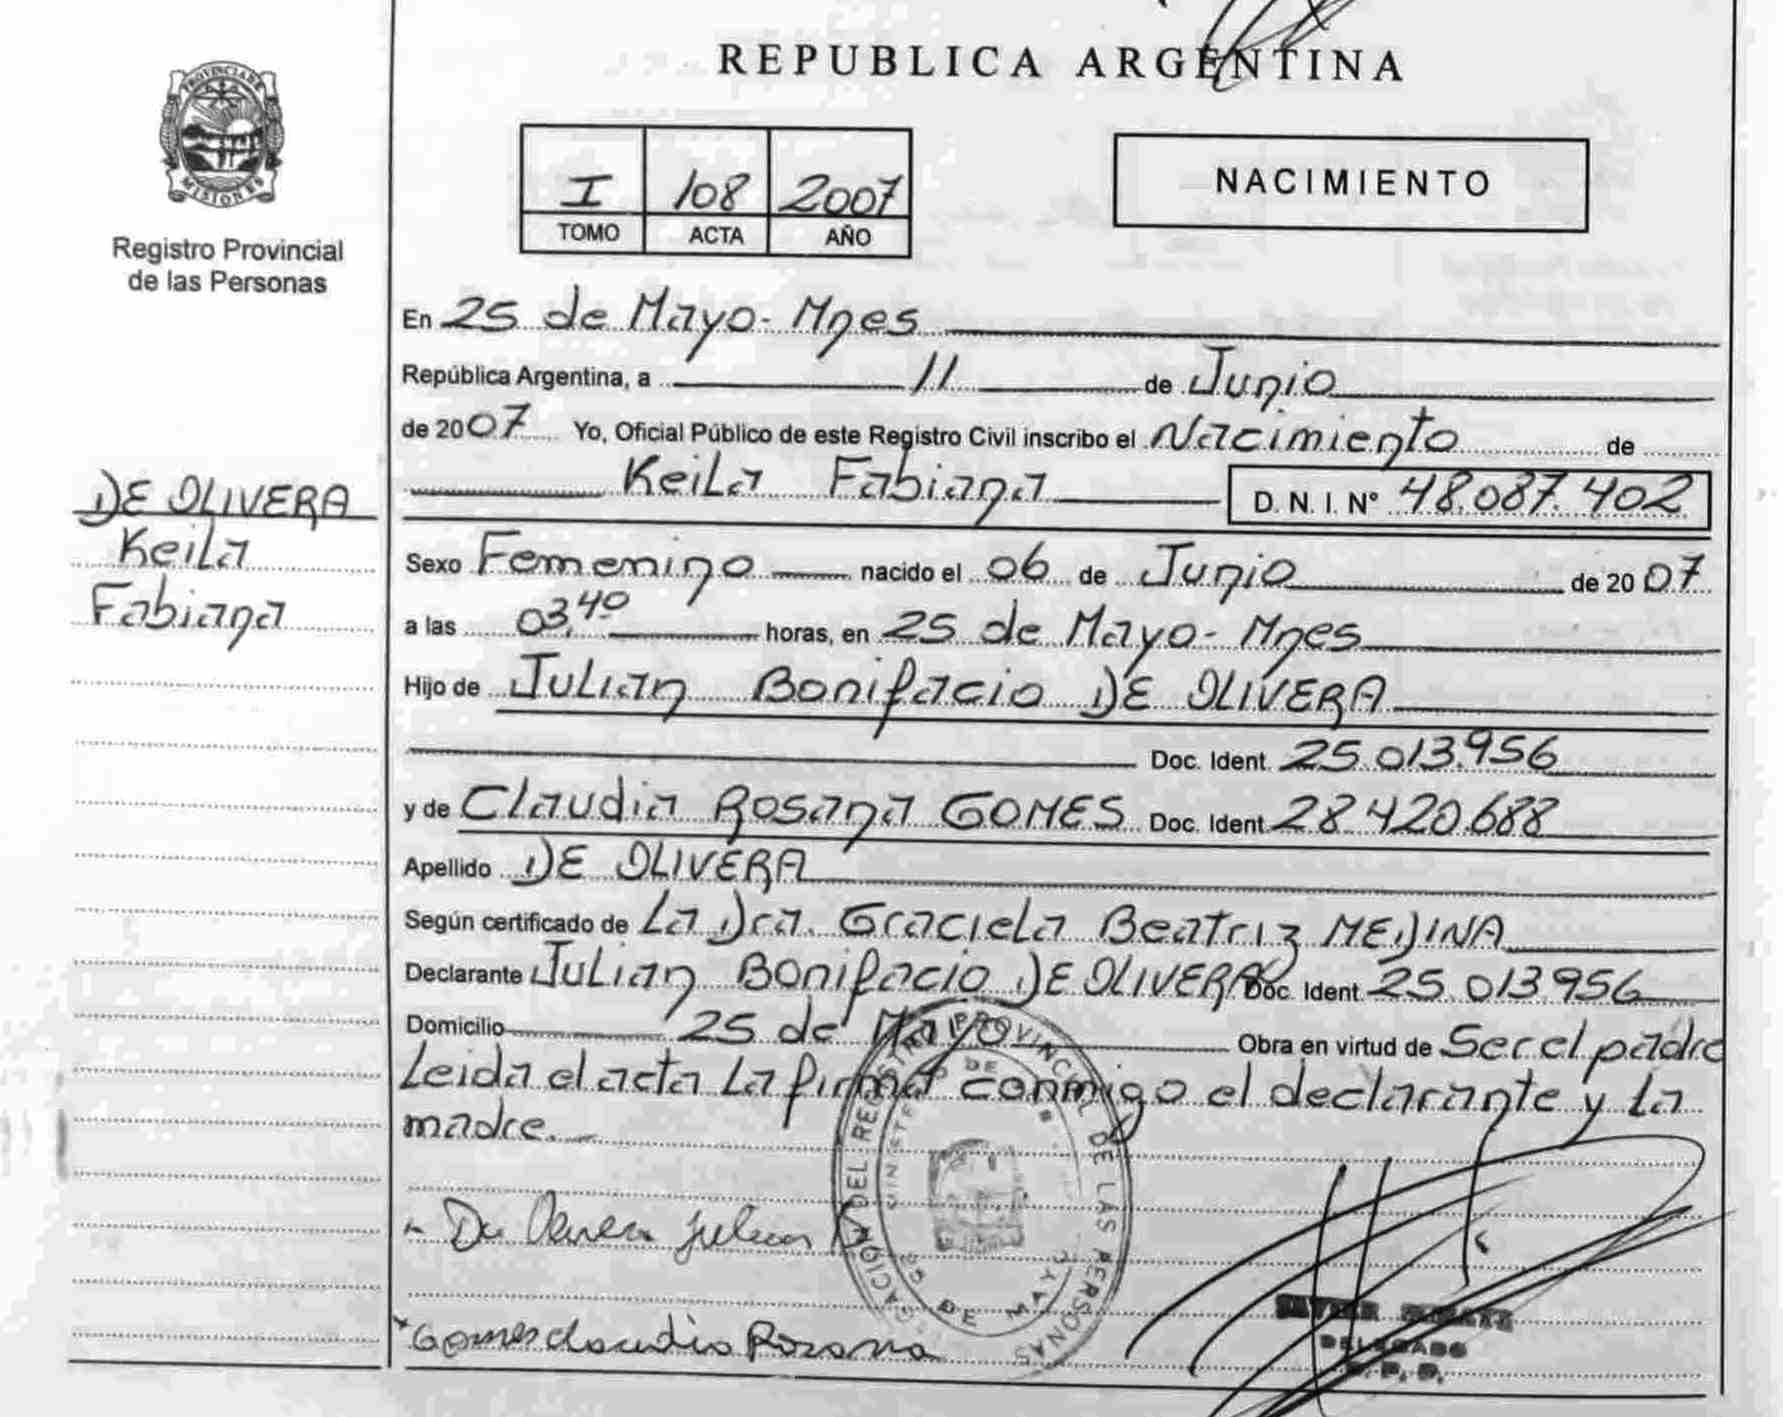 REPUBLICA ARGENTINA
PROVINCIA DE
MISIONES
Registro Provincial
de las Personas
I 108 2007
TOMO ACTA AÑO
NACIMIENTO
En 25 de Mayo - Mnes
República Argentina, a 11 de Junio
de 2007 Yo, Oficial Público de este Registro Civil inscribo el Nacimiento de
Keila Fabiana D. N. I. N° 48.087.402
DE OLIVERA
Keila
Fabiana
Sexo Femenino nacido el 06 de Junio de 2007
a las 03,40 horas, en 25 de Mayo - Mnes
Hijo de Julian Bonifacio DE OLIVERA
Doc. Ident. 25.013.956
y de Claudia Rosana GOMES Doc. Ident 28.420.688
Apellido DE OLIVERA
Según certificado de La Dra. Graciela Beatriz MEDINA
Declarante Julian Bonifacio DE OLIVERA Doc. Ident 25.013.956
Domicilio 25 de Mayo Obra en virtud de Ser el padre
Leida el acta La firma conmigo el declarante y La
madre.
De Olivera Julian B
Gomes Claudia Rosana
PROVINCIAL DE LAS PERSONAS
25 DE MAYO
DELEGADO